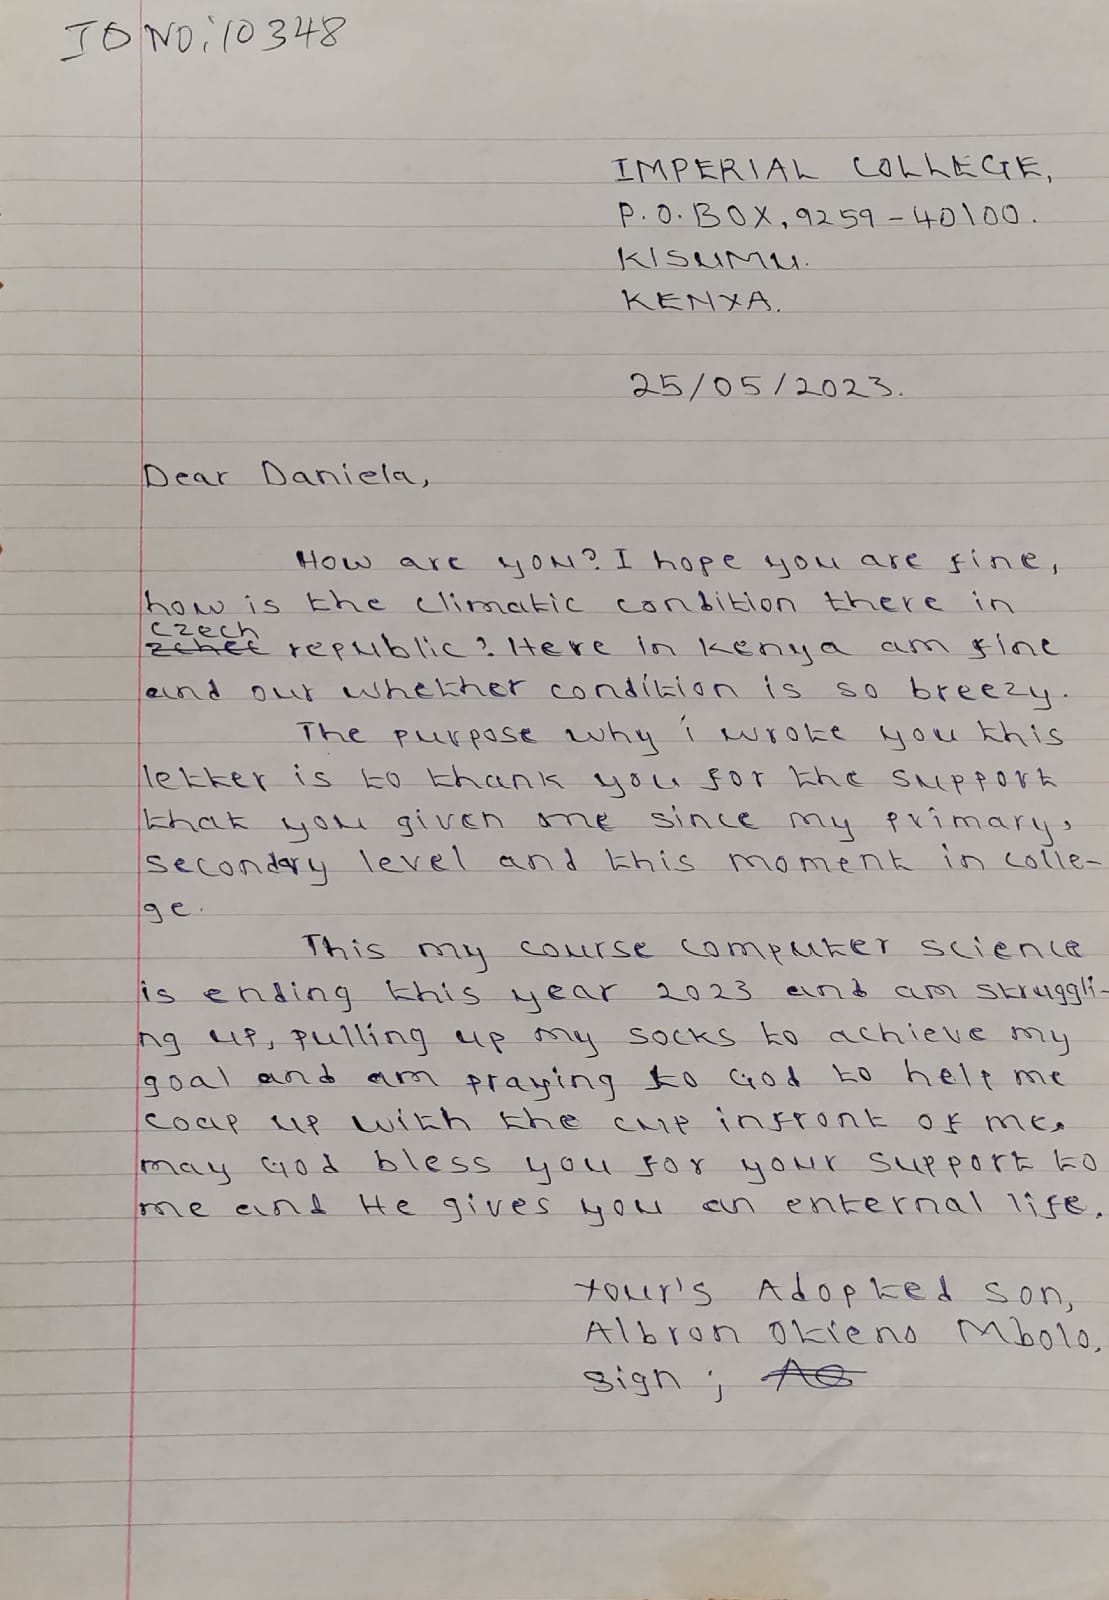 ID NO: 10348
IMPERIAL COLLEGE,
P.O. BOX, 9259 - 40100.
KISUMU.
KENYA.
25/05/2023.
Dear Daniela,
How are you? I hope you are fine,
how is the climatic condition there in
czech
zchec republic? Here in kenya am fine
and our whekher condition is so breezy.
The purpose why i wrote you this
letter is to thank you for the support
that you given me since my primary,
secondary level and this moment in colle-
ge.
This my course computer science
is ending this year 2023 and am struggli-
ng up, pulling up my socks to achieve my
goal and am praying to God to help me
coap up with the cup infront of me.
may God bless you for your support to
me and He gives you an enternal life.
Your's Adopted son,
Albron Otieno Mbolo.
Sign ; AO